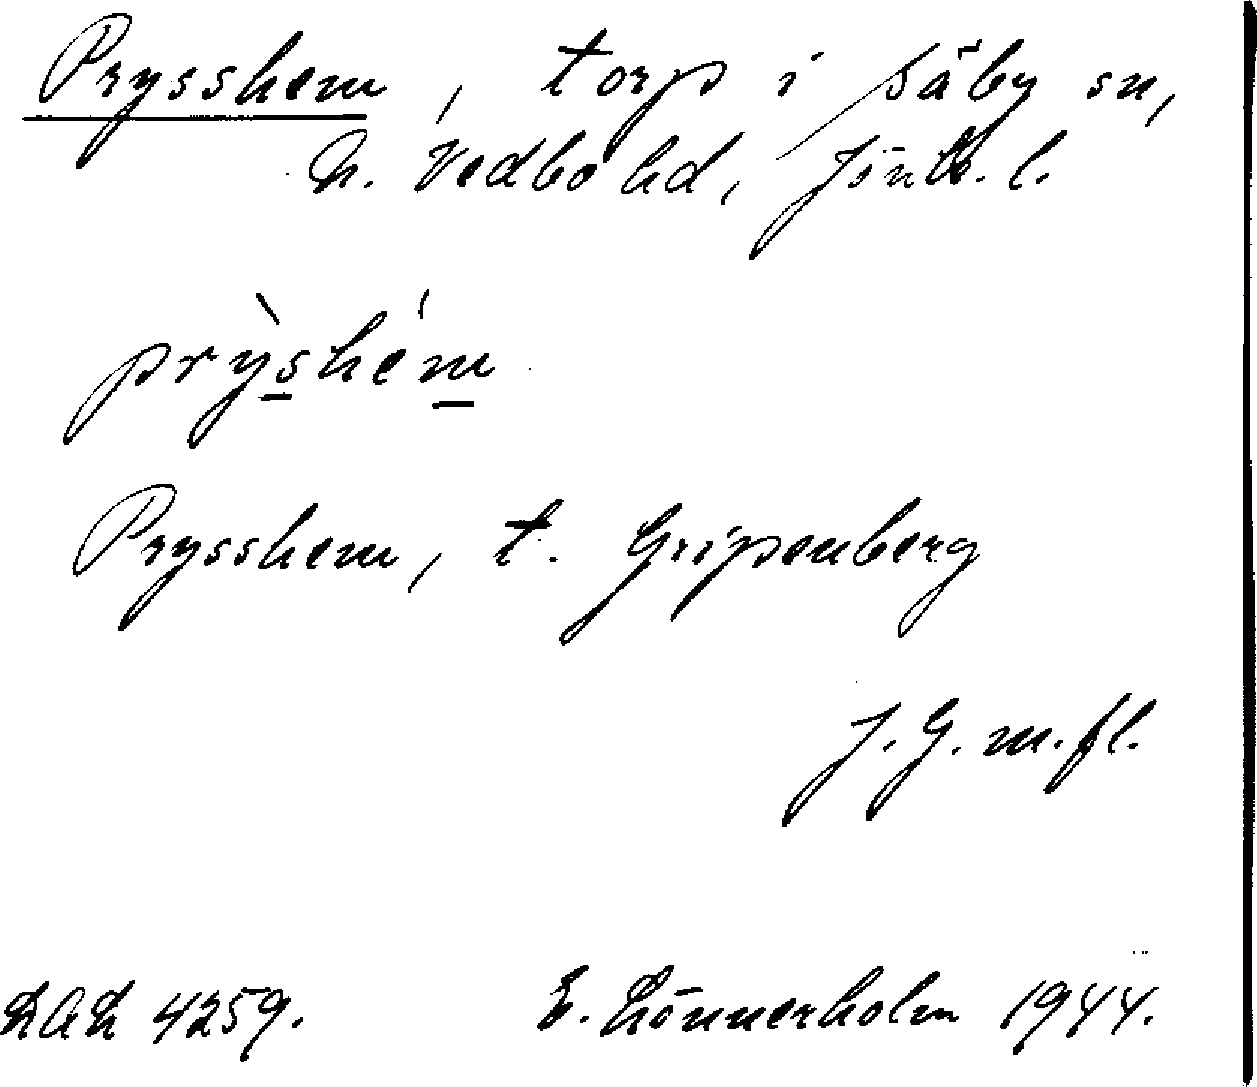 Prysshem, torp i Säby sn,
N. Vedbo hd, Jönk. l.
prỳshém
Prysshem, t. Gripenberg
J. G. m. fl.
DAL 4259. E. Lönnerholm 1944.